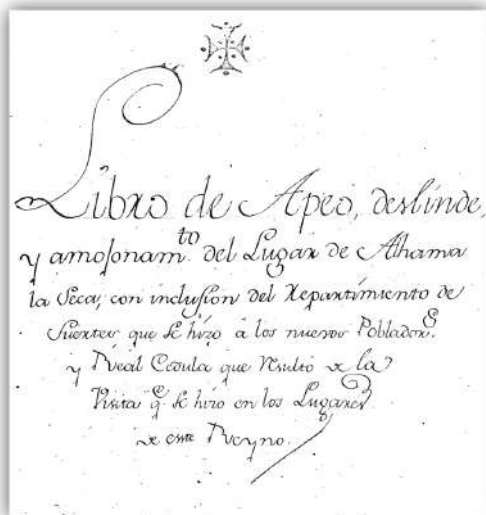 Libro de Apeo, deslinde,
y amojonam.to del Lugar de Alhama
la Seca, con inclusion del Repartimiento de
Suertes que se hizo à los nuevos Poblador.s
y Real Cedula que resultò de la
Visita q.e se hizo en los Lugares
de este Reyno.